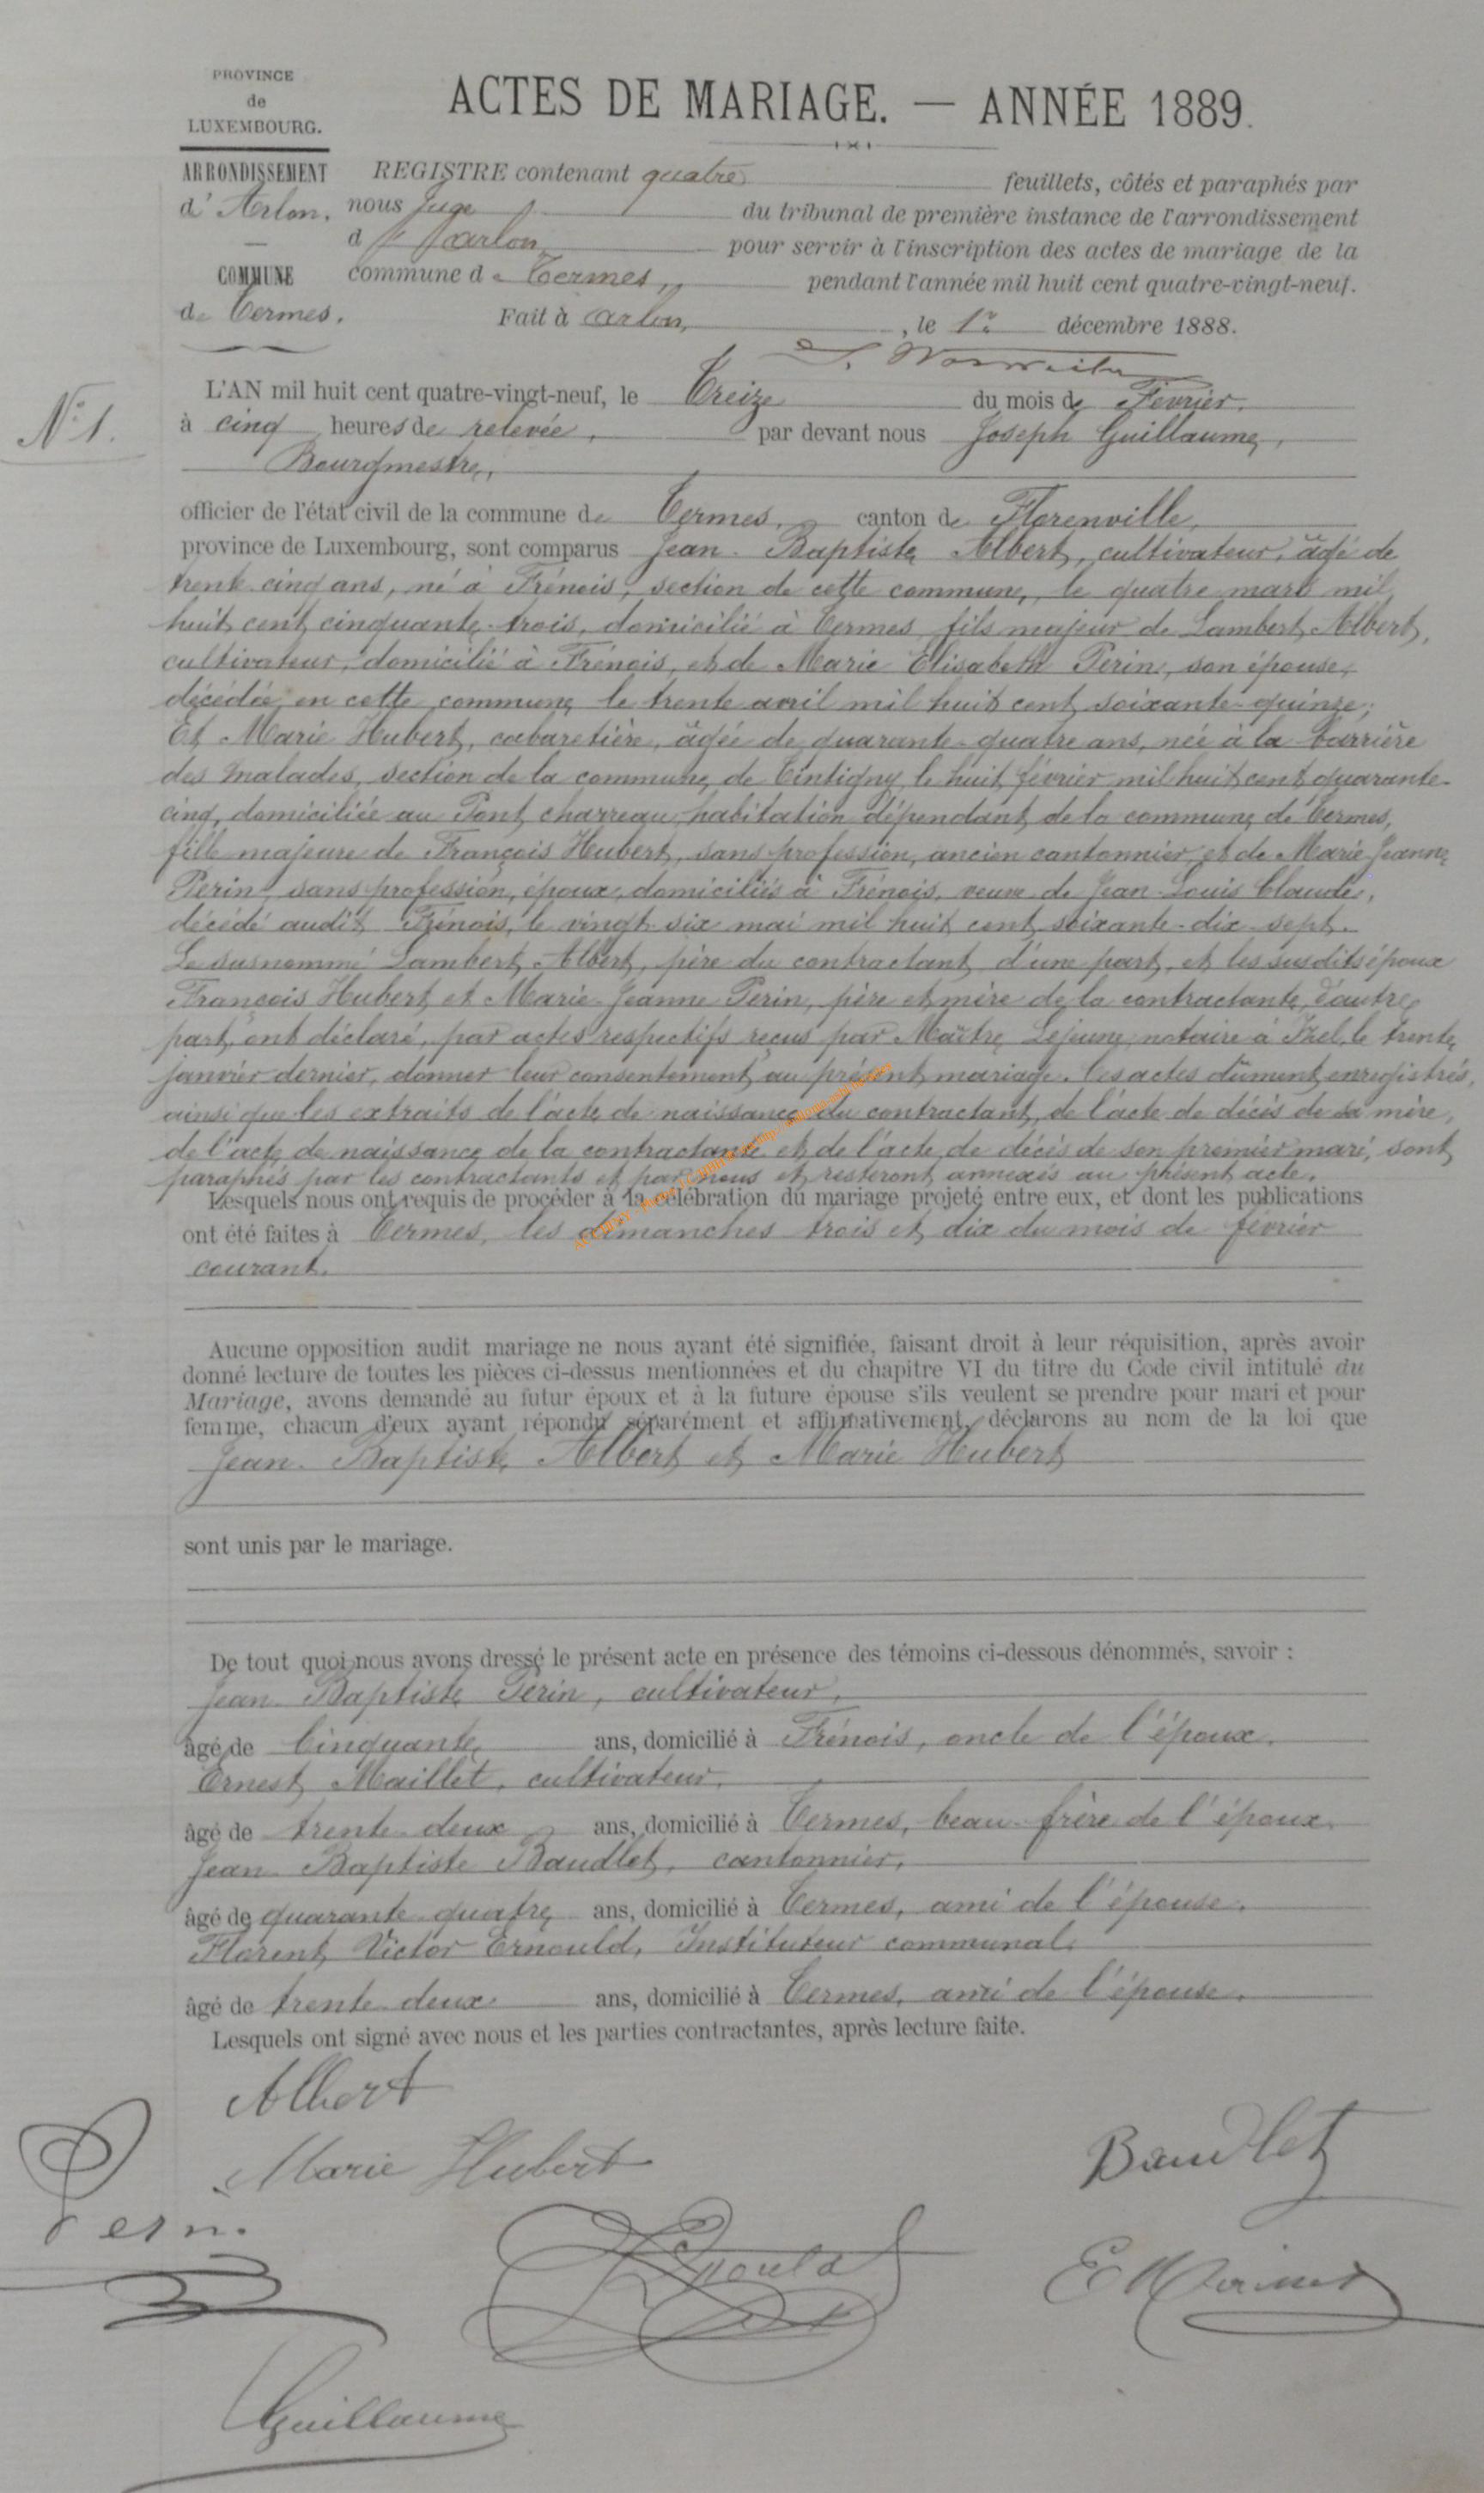 PROVINCE
de
LUXEMBOURG.
ACTES DE MARIAGE. — ANNÉE 1889.
ARRONDISSEMENT
d'Arlon.
COMMUNE
de Termes.
REGISTRE contenant quatre feuillets, côtés et paraphés par
nous Juge du tribunal de première instance de l'arrondissement
d'arlon, pour servir à l'inscription des actes de mariage de la
commune de Termes, pendant l'année mil huit cent quatre-vingt-neuf.
Fait à arlon, , le 1er décembre 1888.
N° 1.
L'AN mil huit cent quatre-vingt-neuf, le Treize du mois de Février.
à cinq heures de relevée, par devant nous Joseph Guillaume,
Bourgmestre,
officier de l'état civil de la commune de Termes, canton de Florenville,
province de Luxembourg, sont comparus Jean-Baptiste Albert, cultivateur, âgé de
trente-cinq ans, né à Frénois, section de cette commune, le quatre mars mil
huit cent cinquante-trois, domicilié à Termes, fils majeur de Lambert Albert,
cultivateur, domicilié à Frénois, et de Marie Elisabeth Perin, son épouse,
décédée en cette commune le trente avril mil huit cent soixante-quinze;
Et Marie Hubert, cabaretière, âgée de quarante-quatre ans, née à la barrière
des malades, section de la commune de Tintigny, le huit février mil huit cent quarante-
cinq, domiciliée au Pont charreau, habitation dépendant de la commune de Termes,
fille majeure de François Hubert, sans profession, ancien cantonnier, et de Marie-Jeanne
Perin, sans profession, époux, domiciliés à Frénois, veuve de Jean-Louis Claude,
décédé audit Frénois, le vingt-six mai mil huit cent soixante-dix-sept.
Le susnommé Lambert Albert, père du contractant d'une part, et les susdits époux
François Hubert et Marie-Jeanne Perin, père et mère de la contractante, d'autre
part, ont déclaré, par actes respectifs reçus par Maître Lejeune, notaire à Izel, le trente
janvier dernier, donner leur consentement au présent mariage. les actes dûment enregistrés,
ainsi que les extraits de l'acte de naissance du contractant, de l'acte de décès de sa mère,
de l'acte de naissance de la contractante et de l'acte de décès de son premier mari, sont
paraphés par les contractants et par nous et resteront annexés au présent acte.
Lesquels nous ont requis de procéder à la célébration du mariage projeté entre eux, et dont les publications
ont été faites à Termes, les dimanches trois et dix du mois de février
courant.
Aucune opposition audit mariage ne nous ayant été signifiée, faisant droit à leur réquisition, après avoir
donné lecture de toutes les pièces ci-dessus mentionnées et du chapitre VI du titre du Code civil intitulé du
Mariage, avons demandé au futur époux et à la future épouse s'ils veulent se prendre pour mari et pour
femme, chacun d'eux ayant répondu séparément et affirmativement, déclarons au nom de la loi que
Jean-Baptiste Albert et Marie Hubert
sont unis par le mariage.
De tout quoi nous avons dressé le présent acte en présence des témoins ci-dessous dénommés, savoir :
Jean-Baptiste Perin, cultivateur,
âgé de Cinquante ans, domicilié à Frénois, oncle de l'époux.
Ernest Maillet, cultivateur,
âgé de trente-deux ans, domicilié à Termes, beau-frère de l'époux.
Jean-Baptiste Baudlet, cantonnier,
âgé de quarante-quatre ans, domicilié à Termes, ami de l'épouse.
Florent Victor Ernould, Instituteur communal
âgé de trente-deux ans, domicilié à Termes, ami de l'épouse.
Lesquels ont signé avec nous et les parties contractantes, après lecture faite.
Albert
Marie Hubert
Baudlet
Perin.
Ernould
Guillaume